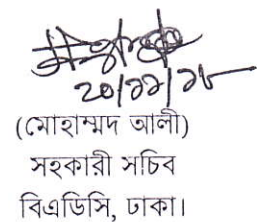 ২০/১১/১৮
(মোহাম্মদ আলী)
সহকারী সচিব
বিএডিসি, ঢাকা।